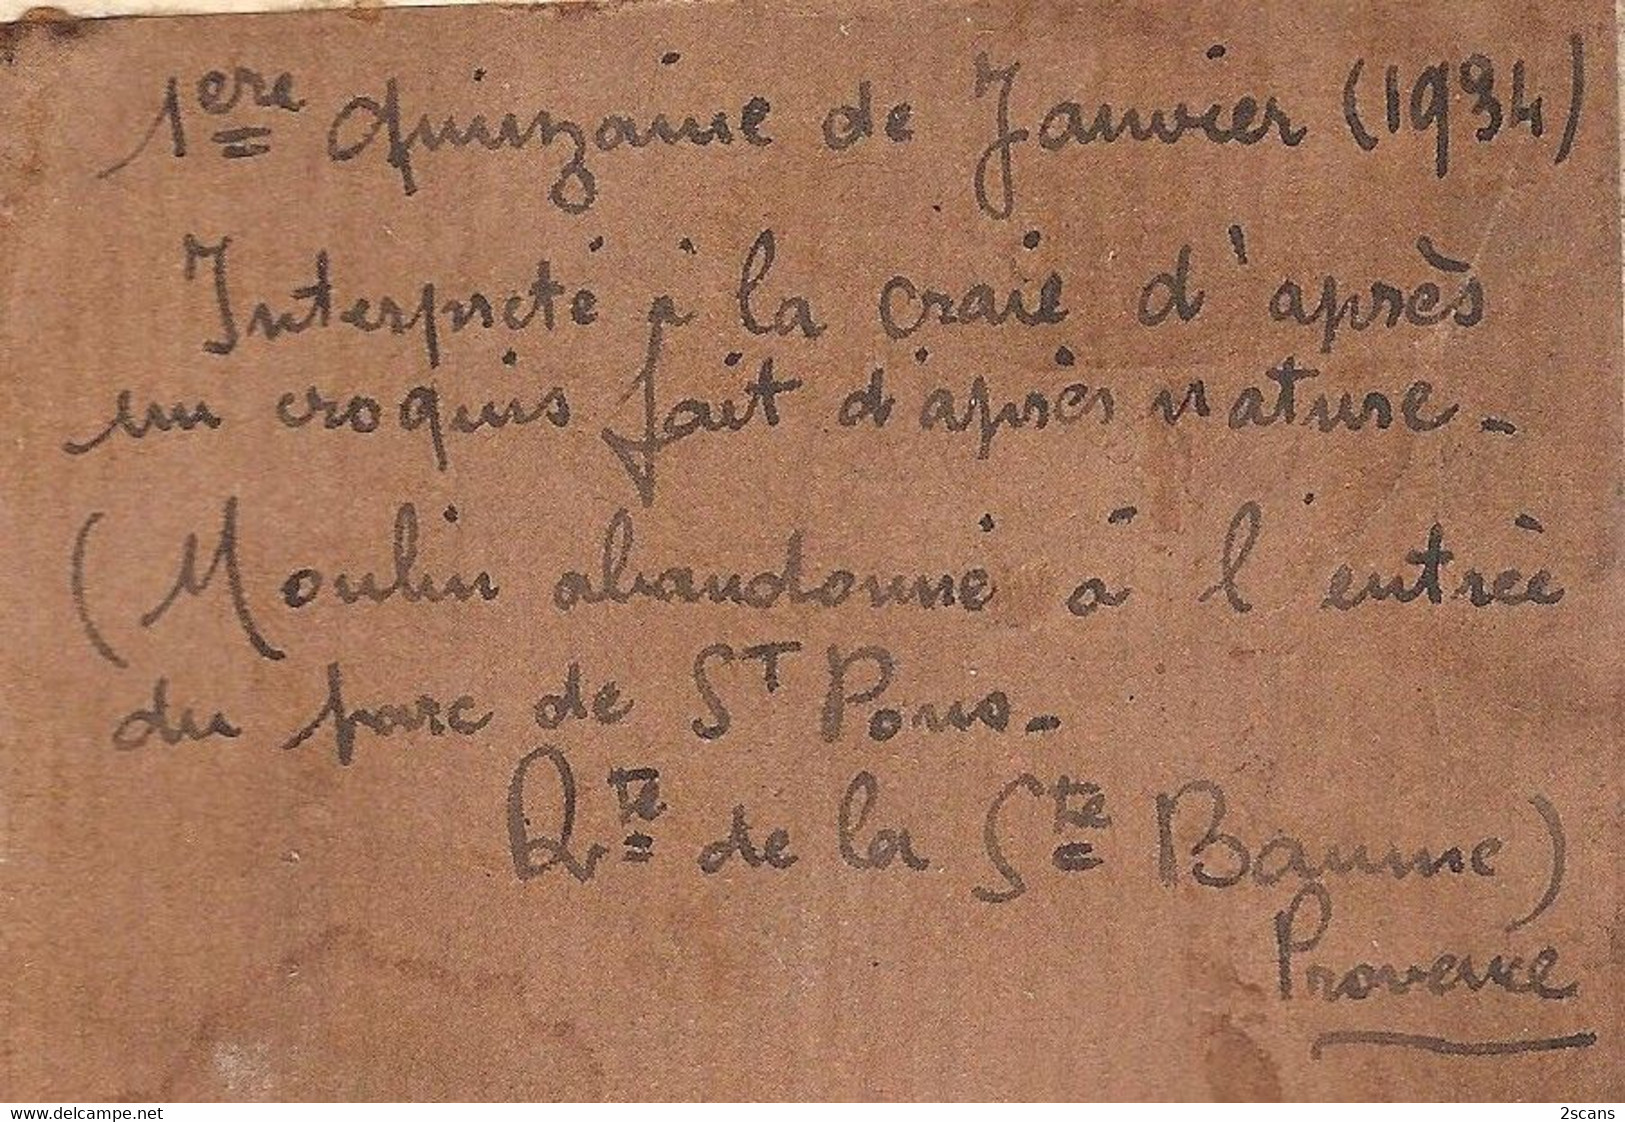 1ere quinzaine de Janvier (1934)
Interprété à la craie d'après
un croquis fait d'après nature.
(Moulin abandonné à l'entrée
du parc de ST Pons.
Qrte de la Ste Baume)
Provence
delcampe.net
2scans